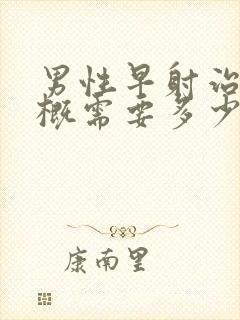 男性早射治
概需要多少
康南里